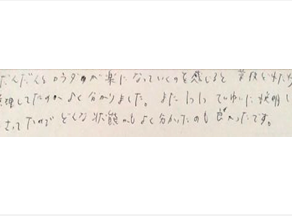 だんだんとカラダが楽になっていくのを感じると 普段どれだけ
無理してたのかよく分かりました。またひとつひとつていねいに説明し
さってたので どんな状態かもよく分かったのも良かったです。